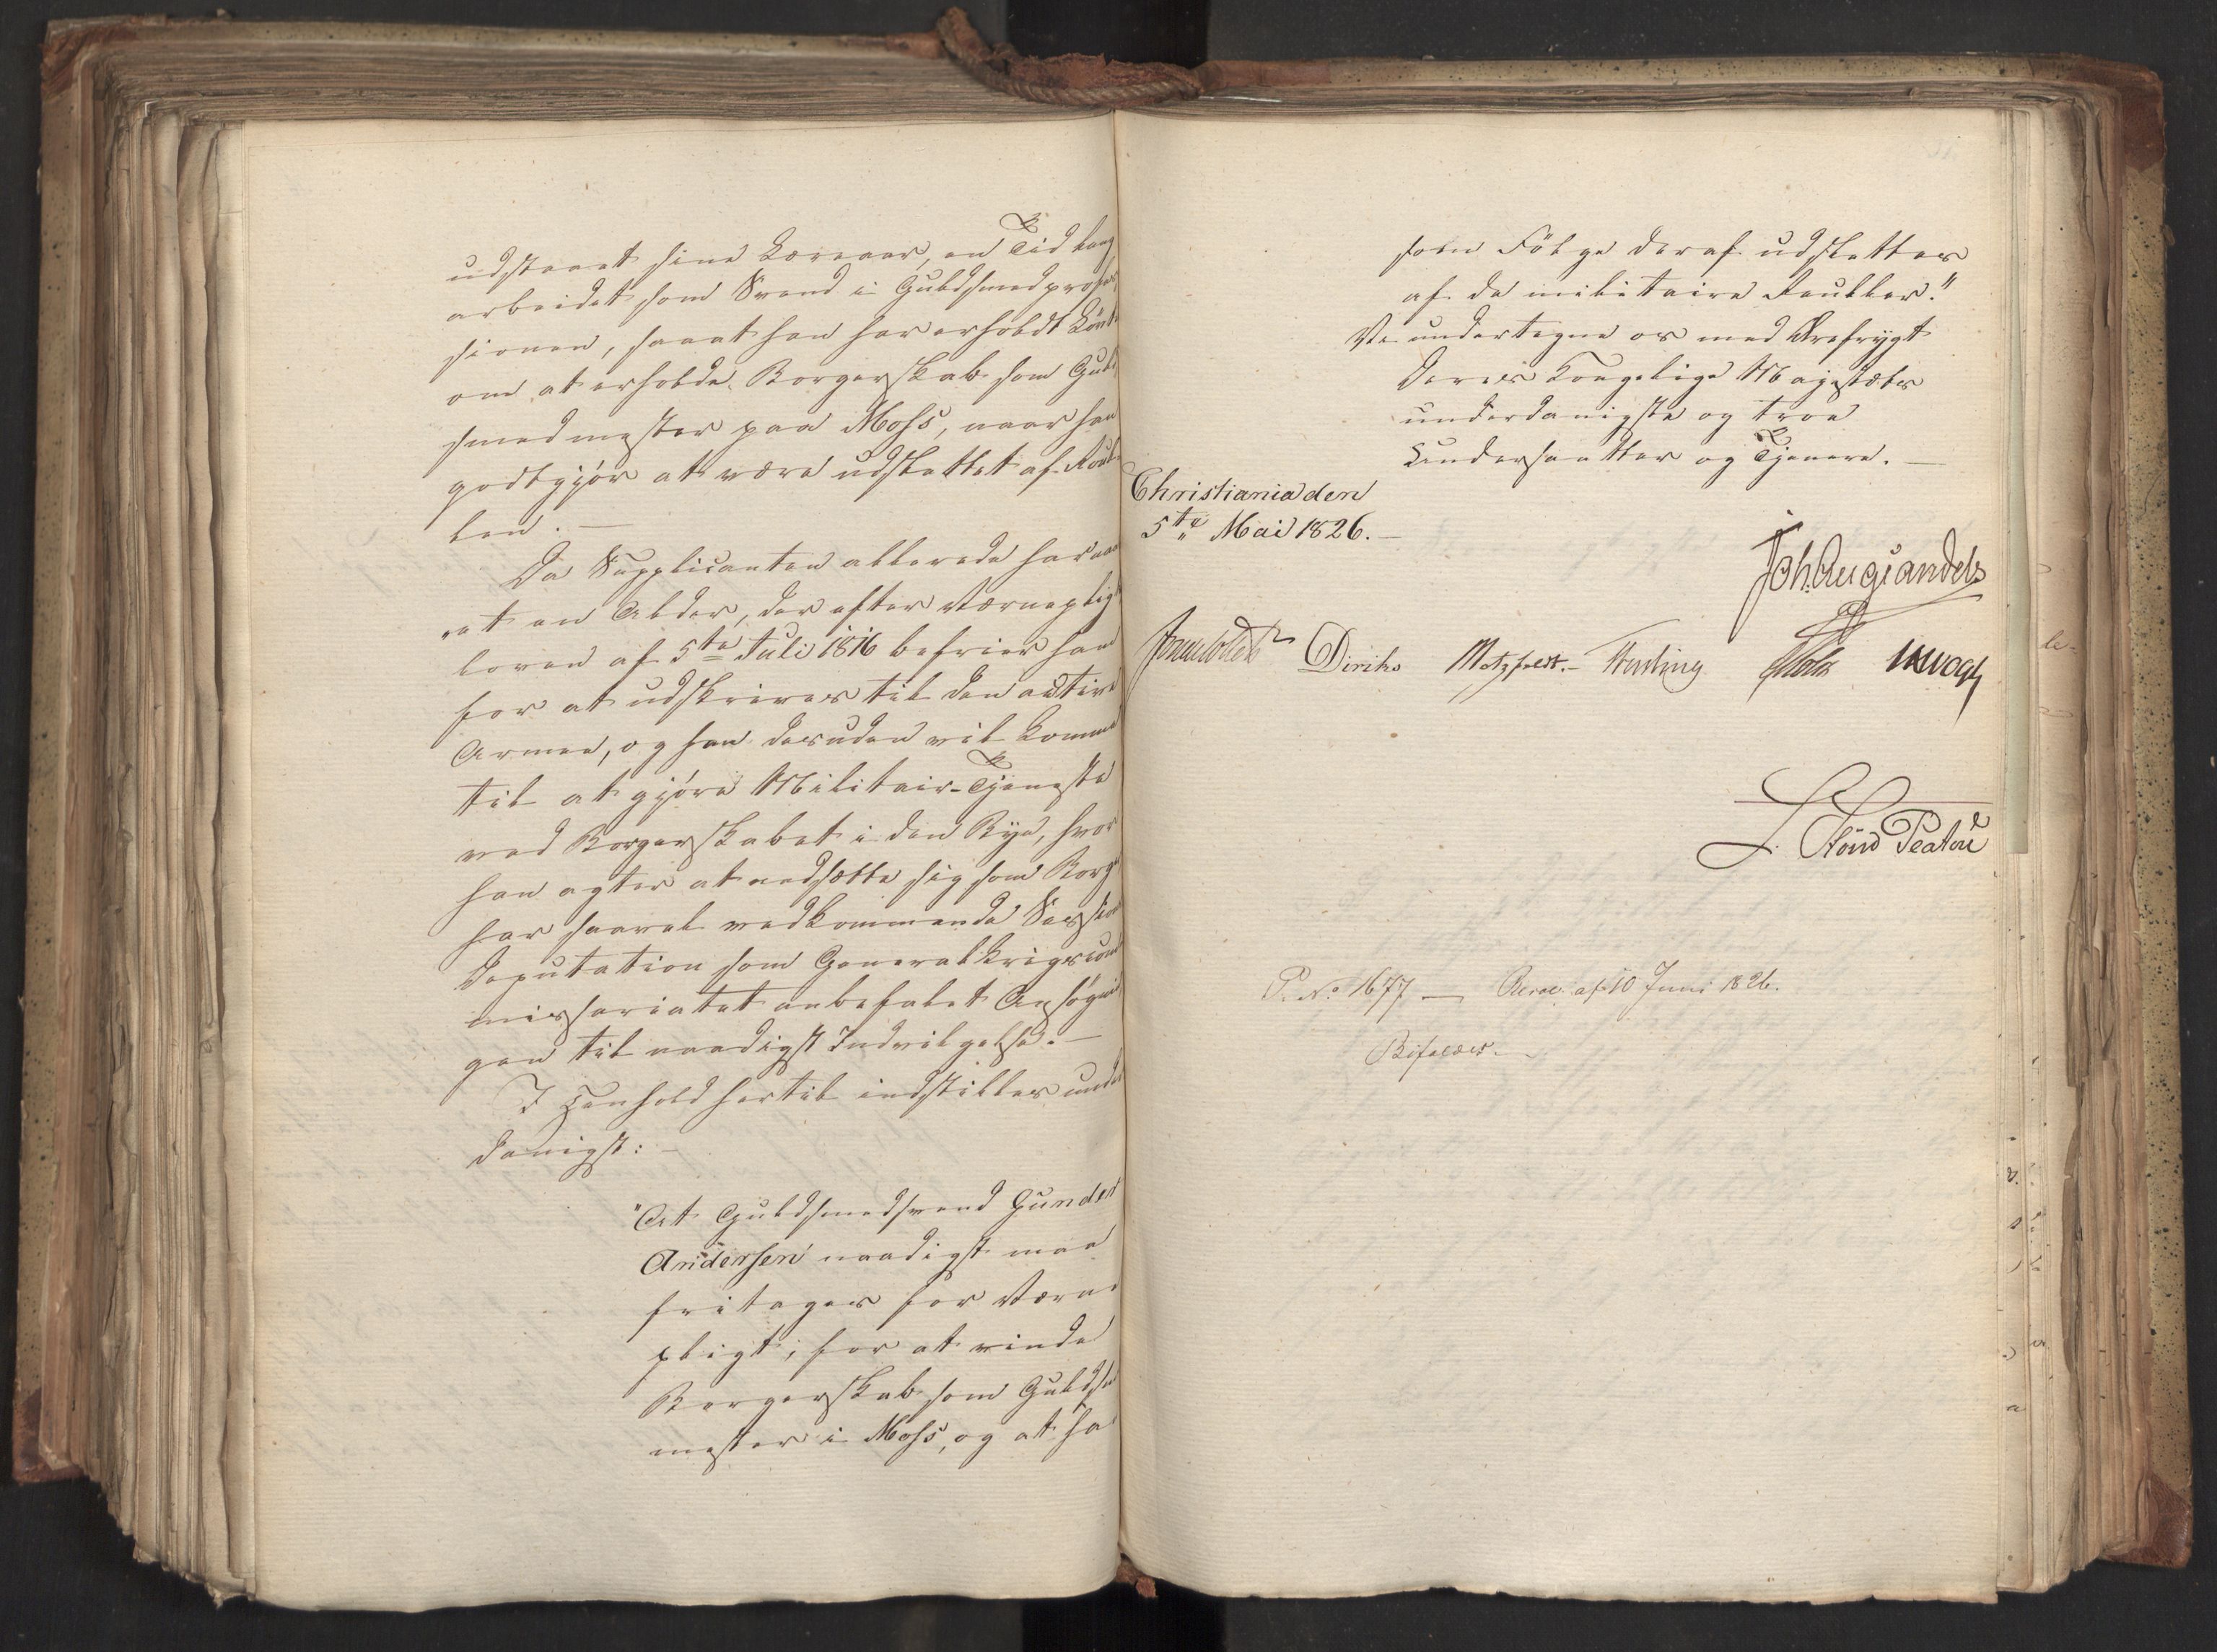 udstaaet sine Læreaar, en Tid lang
arbeidet som Svend i Guldsmedprofes
sionen, saaat han har erholdt Löfte
om at erholde Borgerskab som Guld
smedmester paa Moss, naar han
godtgjør at være udslettet af Roul
len. —
Da Supplicanten allerede har naa
et en Alder, der efter Værneplig
loven af 5te Juli 1816 befrier ham
for at udskrives til den active
Armee, og han desuden vil komme
til at gjøre Militair-Tjeneste
ved Borgerskabet i den Bye, hvor
han agter at nedsætte sig som Borger
har saavel vedkommende Sessions
Deputation som Generalkrigscom
missariatet anbefalet Ansögnin
gen til naadigst Indvilgelse. —
I Henhold hertil indstilles under
danigst: —
"At Guldsmedsvend Gunder
Andersen naadigst maa
fritages for Værne
pligt, for at vinde
Borgerskab som Guldsm
mester i Moss, og at ha
som Fölge deraf udslettes
af de militaire Roller."
Vi undertegne os med Ærefrygt
Deres Kongelige Majestæts
underdanigste og troe
Undersaatter og Tjenere. —
Christiania den
5te Mai 1826. —
Joh. Aug. Sandels
Jonas Collett Diriks Motzfeldt. — Holst Vogt
L. Röne Peatou
P. No. 1677 — Resol. af 10 Juni 1826.
Bifaldes. —